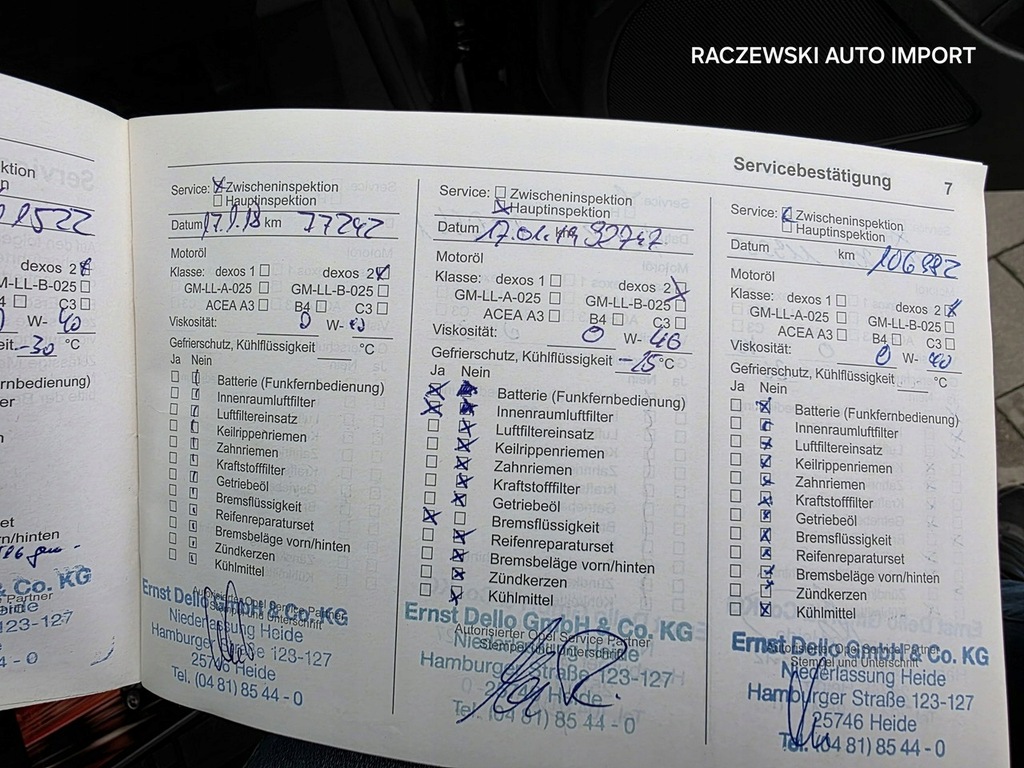 RACZEWSKI AUTO IMPORT
Servicebestätigung 7
ktion
1522
dexos 2
GM-LL-B-025
B4 C3
W- 40
-30 °C
rnbedienung)
er
n
et
n/hinten
& Co. KG
Partner
123-127
- 0
Service: Zwischeninspektion
Hauptinspektion
Datum 17.1.18 km 77242
Motoröl
Klasse: dexos 1 dexos 2
GM-LL-A-025 GM-LL-B-025
ACEA A3 B4 C3
Viskosität: 0 W- 40
Gefrierschutz, Kühlflüssigkeit °C
Ja Nein
Batterie (Funkfernbedienung)
Innenraumluftfilter
Luftfiltereinsatz
Keilrippenriemen
Zahnriemen
Kraftstofffilter
Getriebeöl
Bremsflüssigkeit
Reifenreparaturset
Bremsbeläge vorn/hinten
Zündkerzen
Kühlmittel
Autorisierter Opel Service Partner
Stempel und Unterschrift
Ernst Dello GmbH & Co. KG
Niederlassung Heide
Hamburger Straße 123-127
25746 Heide
Tel. (04 81) 85 44 - 0
Service: Zwischeninspektion
Hauptinspektion
Datum 17.01.19 km 92747
Motoröl
Klasse: dexos 1 dexos 2
GM-LL-A-025 GM-LL-B-025
ACEA A3 B4 C3
Viskosität: 0 W- 40
Gefrierschutz, Kühlflüssigkeit -25 °C
Ja Nein
Batterie (Funkfernbedienung)
Innenraumluftfilter
Luftfiltereinsatz
Keilrippenriemen
Zahnriemen
Kraftstofffilter
Getriebeöl
Bremsflüssigkeit
Reifenreparaturset
Bremsbeläge vorn/hinten
Zündkerzen
Kühlmittel
Autorisierter Opel Service Partner
Stempel und Unterschrift
Ernst Dello GmbH & Co. KG
Niederlassung Heide
Hamburger Straße 123-127
25746 Heide
Tel. (04 81) 85 44 - 0
Service: Zwischeninspektion
Hauptinspektion
Datum km 106992
Motoröl
Klasse: dexos 1 dexos 2
GM-LL-A-025 GM-LL-B-025
ACEA A3 B4 C3
Viskosität: 0 W- 40
Gefrierschutz, Kühlflüssigkeit °C
Ja Nein
Batterie (Funkfernbedienung)
Innenraumluftfilter
Luftfiltereinsatz
Keilrippenriemen
Zahnriemen
Kraftstofffilter
Getriebeöl
Bremsflüssigkeit
Reifenreparaturset
Bremsbeläge vorn/hinten
Zündkerzen
Kühlmittel
Autorisierter Opel Service Partner
Stempel und Unterschrift
Ernst Dello GmbH & Co. KG
Niederlassung Heide
Hamburger Straße 123-127
25746 Heide
Tel. (04 81) 85 44 - 0